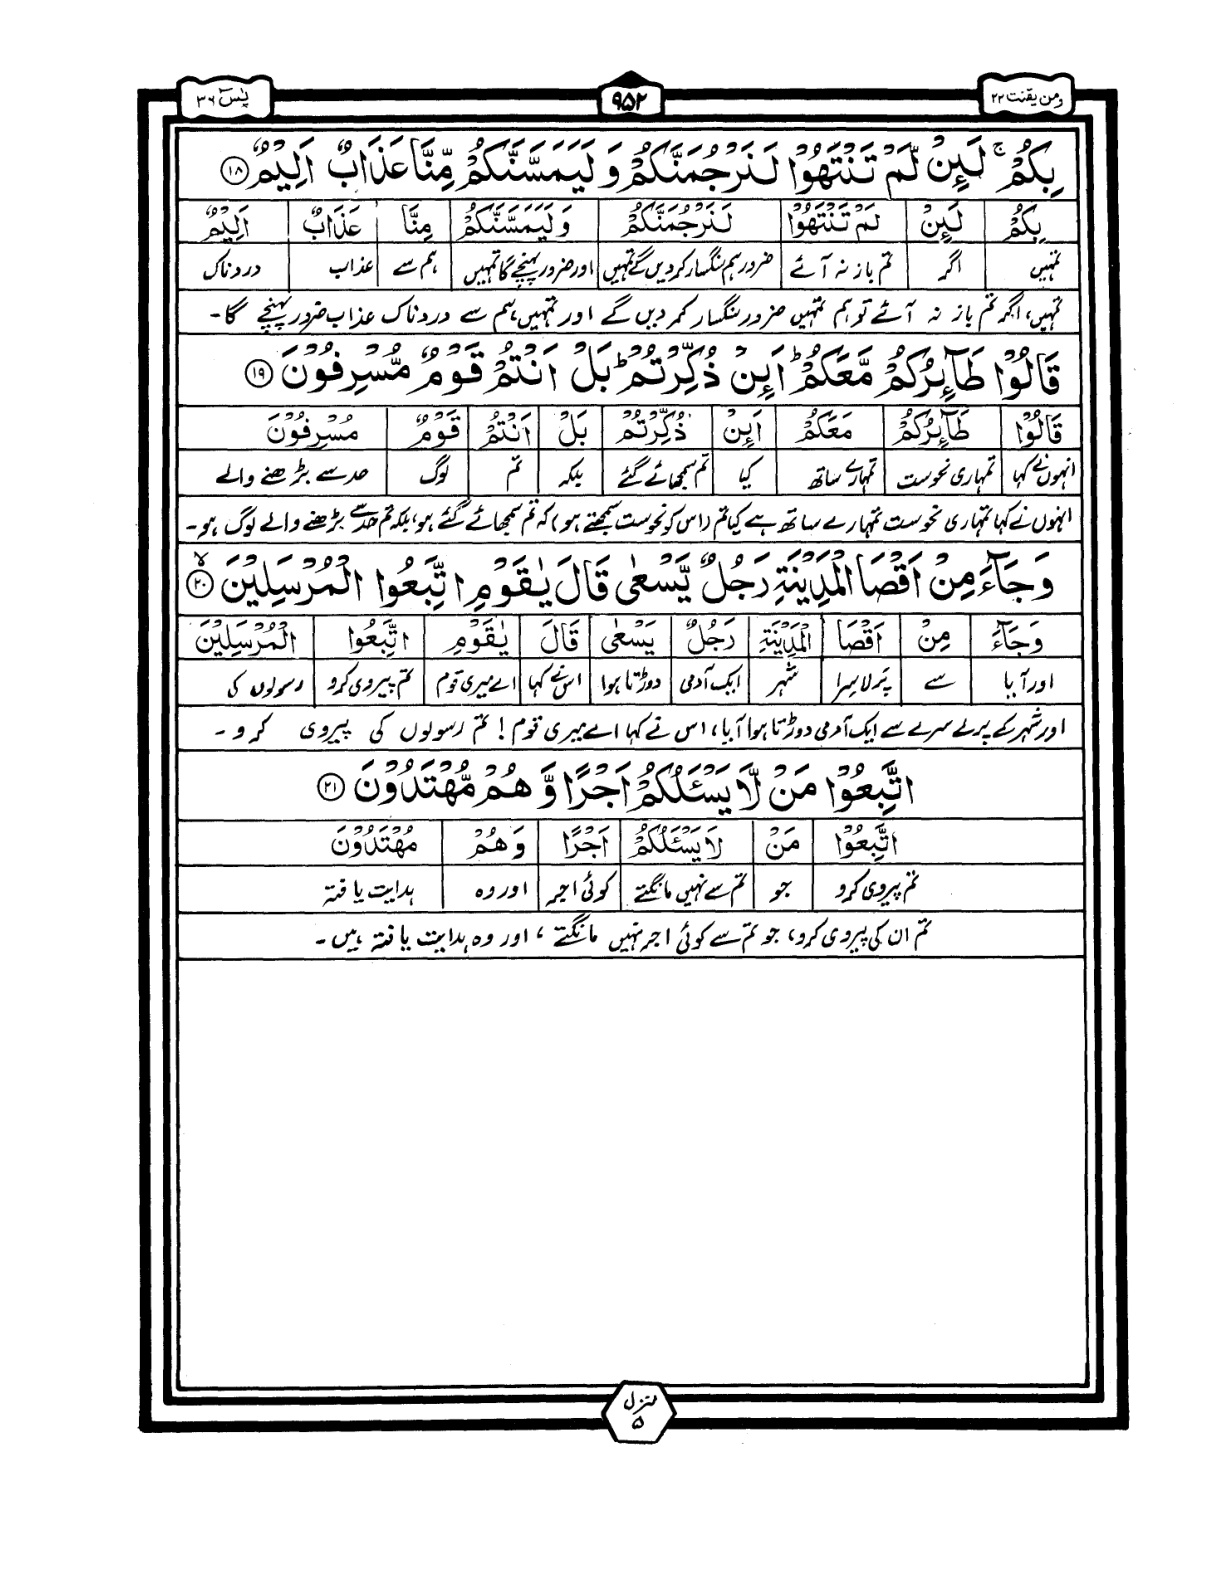 ومن یقنت ۲۲
۹۵۲
یٰسٓ ۳۶
بِكُمْ ۚ لَئِنْ لَّمْ تَنْتَهُوْا لَنَرْجُمَنَّكُمْ وَ لَيَمَسَّنَّكُمْ مِّنَّا عَذَابٌ اَلِيْمٌ ۱۸
بِكُمْ لَئِنْ لَمْ تَنْتَهُوْا لَنَرْجُمَنَّكُمْ وَ لَيَمَسَّنَّكُمْ مِنَّا عَذَابٌ اَلِيْمٌ
تمہیں اگر تم باز نہ آئے ضرور ہم سنگسار کردیں گے تمہیں اور ضرور پہنچے گا تمہیں ہم سے عذاب دردناک
تمہیں، اگر تم باز نہ آئے تو ہم تمہیں ضرور سنگسار کردیں گے اور تمہیں ہم سے دردناک عذاب ضرور پہنچے گا۔
قَالُوْا طَآئِرُكُمْ مَّعَكُمْ ؕ اَئِنْ ذُكِّرْتُمْ ؕ بَلْ اَنْتُمْ قَوْمٌ مُّسْرِفُوْنَ ۱۹
قَالُوْا طَآئِرُكُمْ مَعَكُمْ اَئِنْ ذُكِّرْتُمْ بَلْ اَنْتُمْ قَوْمٌ مُسْرِفُوْنَ
انہوں نے کہا تمہاری نحوست تمہارے ساتھ کیا تم سمجھائے گئے بلکہ تم لوگ حد سے بڑھنے والے
انہوں نے کہا تمہاری نحوست تمہارے ساتھ ہے کیا تم (اس کو نحوست سمجھتے ہو) کہ تم سمجھائے گئے ہو، بلکہ تم حد سے بڑھنے والے لوگ ہو۔
وَ جَآءَ مِنْ اَقْصَا الْمَدِيْنَةِ رَجُلٌ يَّسْعٰى قَالَ يٰقَوْمِ اتَّبِعُوا الْمُرْسَلِيْنَ ۙ ۲۰
وَ جَآءَ مِنْ اَقْصَا الْمَدِيْنَةِ رَجُلٌ يَسْعٰى قَالَ يٰقَوْمِ اتَّبِعُوا الْمُرْسَلِيْنَ
اور آیا سے پرلا سِرا شہر ایک آدمی دوڑتا ہوا اس نے کہا اے میری قوم تم پیروی کرو رسولوں کی
اور شہر کے پرلے سرے سے ایک آدمی دوڑتا ہوا آیا، اس نے کہا اے میری قوم! تم رسولوں کی پیروی کرو۔
اتَّبِعُوْا مَنْ لَّا يَسْئَلُكُمْ اَجْرًا وَّ هُمْ مُّهْتَدُوْنَ ۲۱
اتَّبِعُوْا مَنْ لَا يَسْئَلُكُمْ اَجْرًا وَ هُمْ مُهْتَدُوْنَ
تم پیروی کرو جو تم سے نہیں مانگتے کوئی اجر اور وہ ہدایت یافتہ
تم ان کی پیروی کرو، جو تم سے کوئی اجر نہیں مانگتے، اور وہ ہدایت یافتہ ہیں۔
منزل
۵